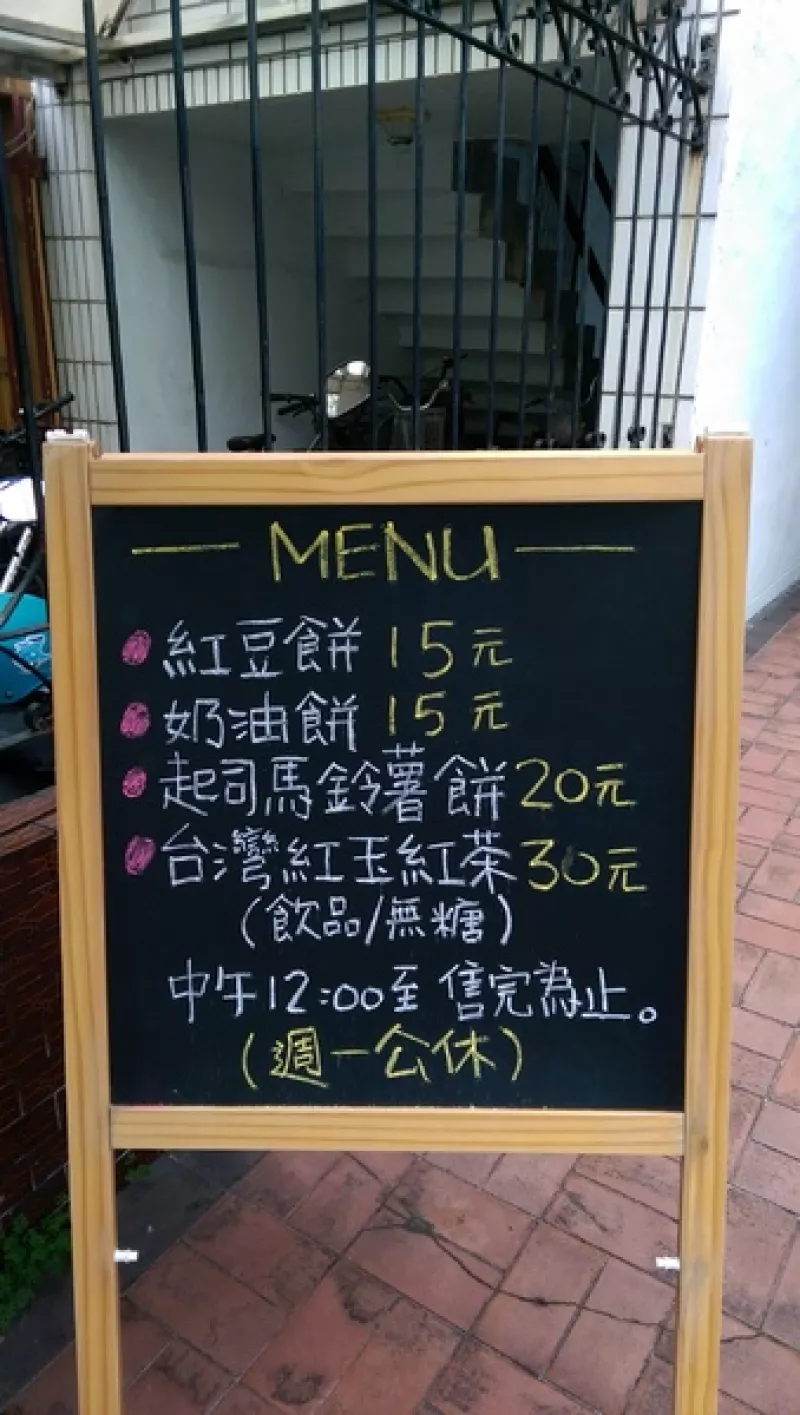 MENU
紅豆餅 15元
奶油餅 15元
起司馬鈴薯餅 20元
台灣紅玉紅茶 30元
(飲品/無糖)
中午12:00至 售完為止。
(週一公休)